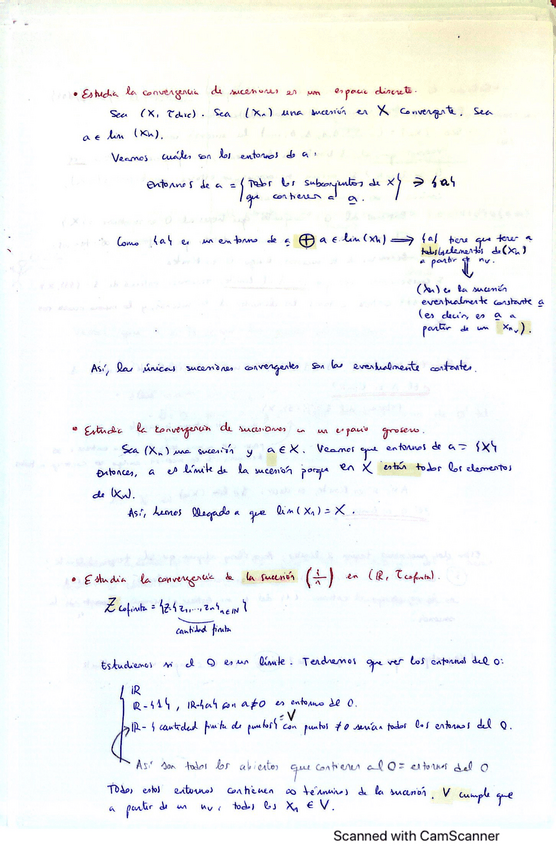 • Estudia la convergencia de sucesiones en un espacio discreto.
Sea (X, τdisc). Sea (Xn) una sucesión en X convergente. Sea
a ∈ lim (Xn).
Veamos cuáles son los entornos de a:
Entornos de a = { Todos los subconjuntos de X que contienen a a. } ⇒ {a}
Como {a} es un entorno de a ⊕ a ∈ lim(Xn) ⟹ {a} tiene que tener a
todos los elementos de (Xn)
a partir de nv.
⇓
(Xn) es la sucesión
eventualmente constante a
(es decir, es a a
partir de un xnv).
Así, las únicas sucesiones convergentes son las eventualmente constantes.
• Estudia la convergencia de sucesiones en un espacio grosero.
Sea (Xn) una sucesión y a ∈ X. Veamos que entornos de a = {X}
Entonces, a es límite de la sucesión porque en X están todos los elementos
de (Xn).
Así, hemos llegado a que lim(Xn) = X.
• Estudia la convergencia de la sucesión (1/n) en (ℝ, τcofinita).
Z cofinita = {Z-{z1,...,zn}n∈ℕ}
cantidad finita
Estudiemos si el 0 es un límite. Tendremos que ver los entornos del 0:
ℝ
ℝ-{1}, ℝ-{a} con a≠0 es entorno de 0.
ℝ-{cantidad finita de puntos} = V con puntos ≠0 serían todos los entornos del 0.
Así son todos los abiertos que contienen al 0 = entornos del 0
Todos estos entornos contienen ∞ términos de la sucesión. V cumple que
a partir de un nv, todos los Xn ∈ V.
Scanned with CamScanner